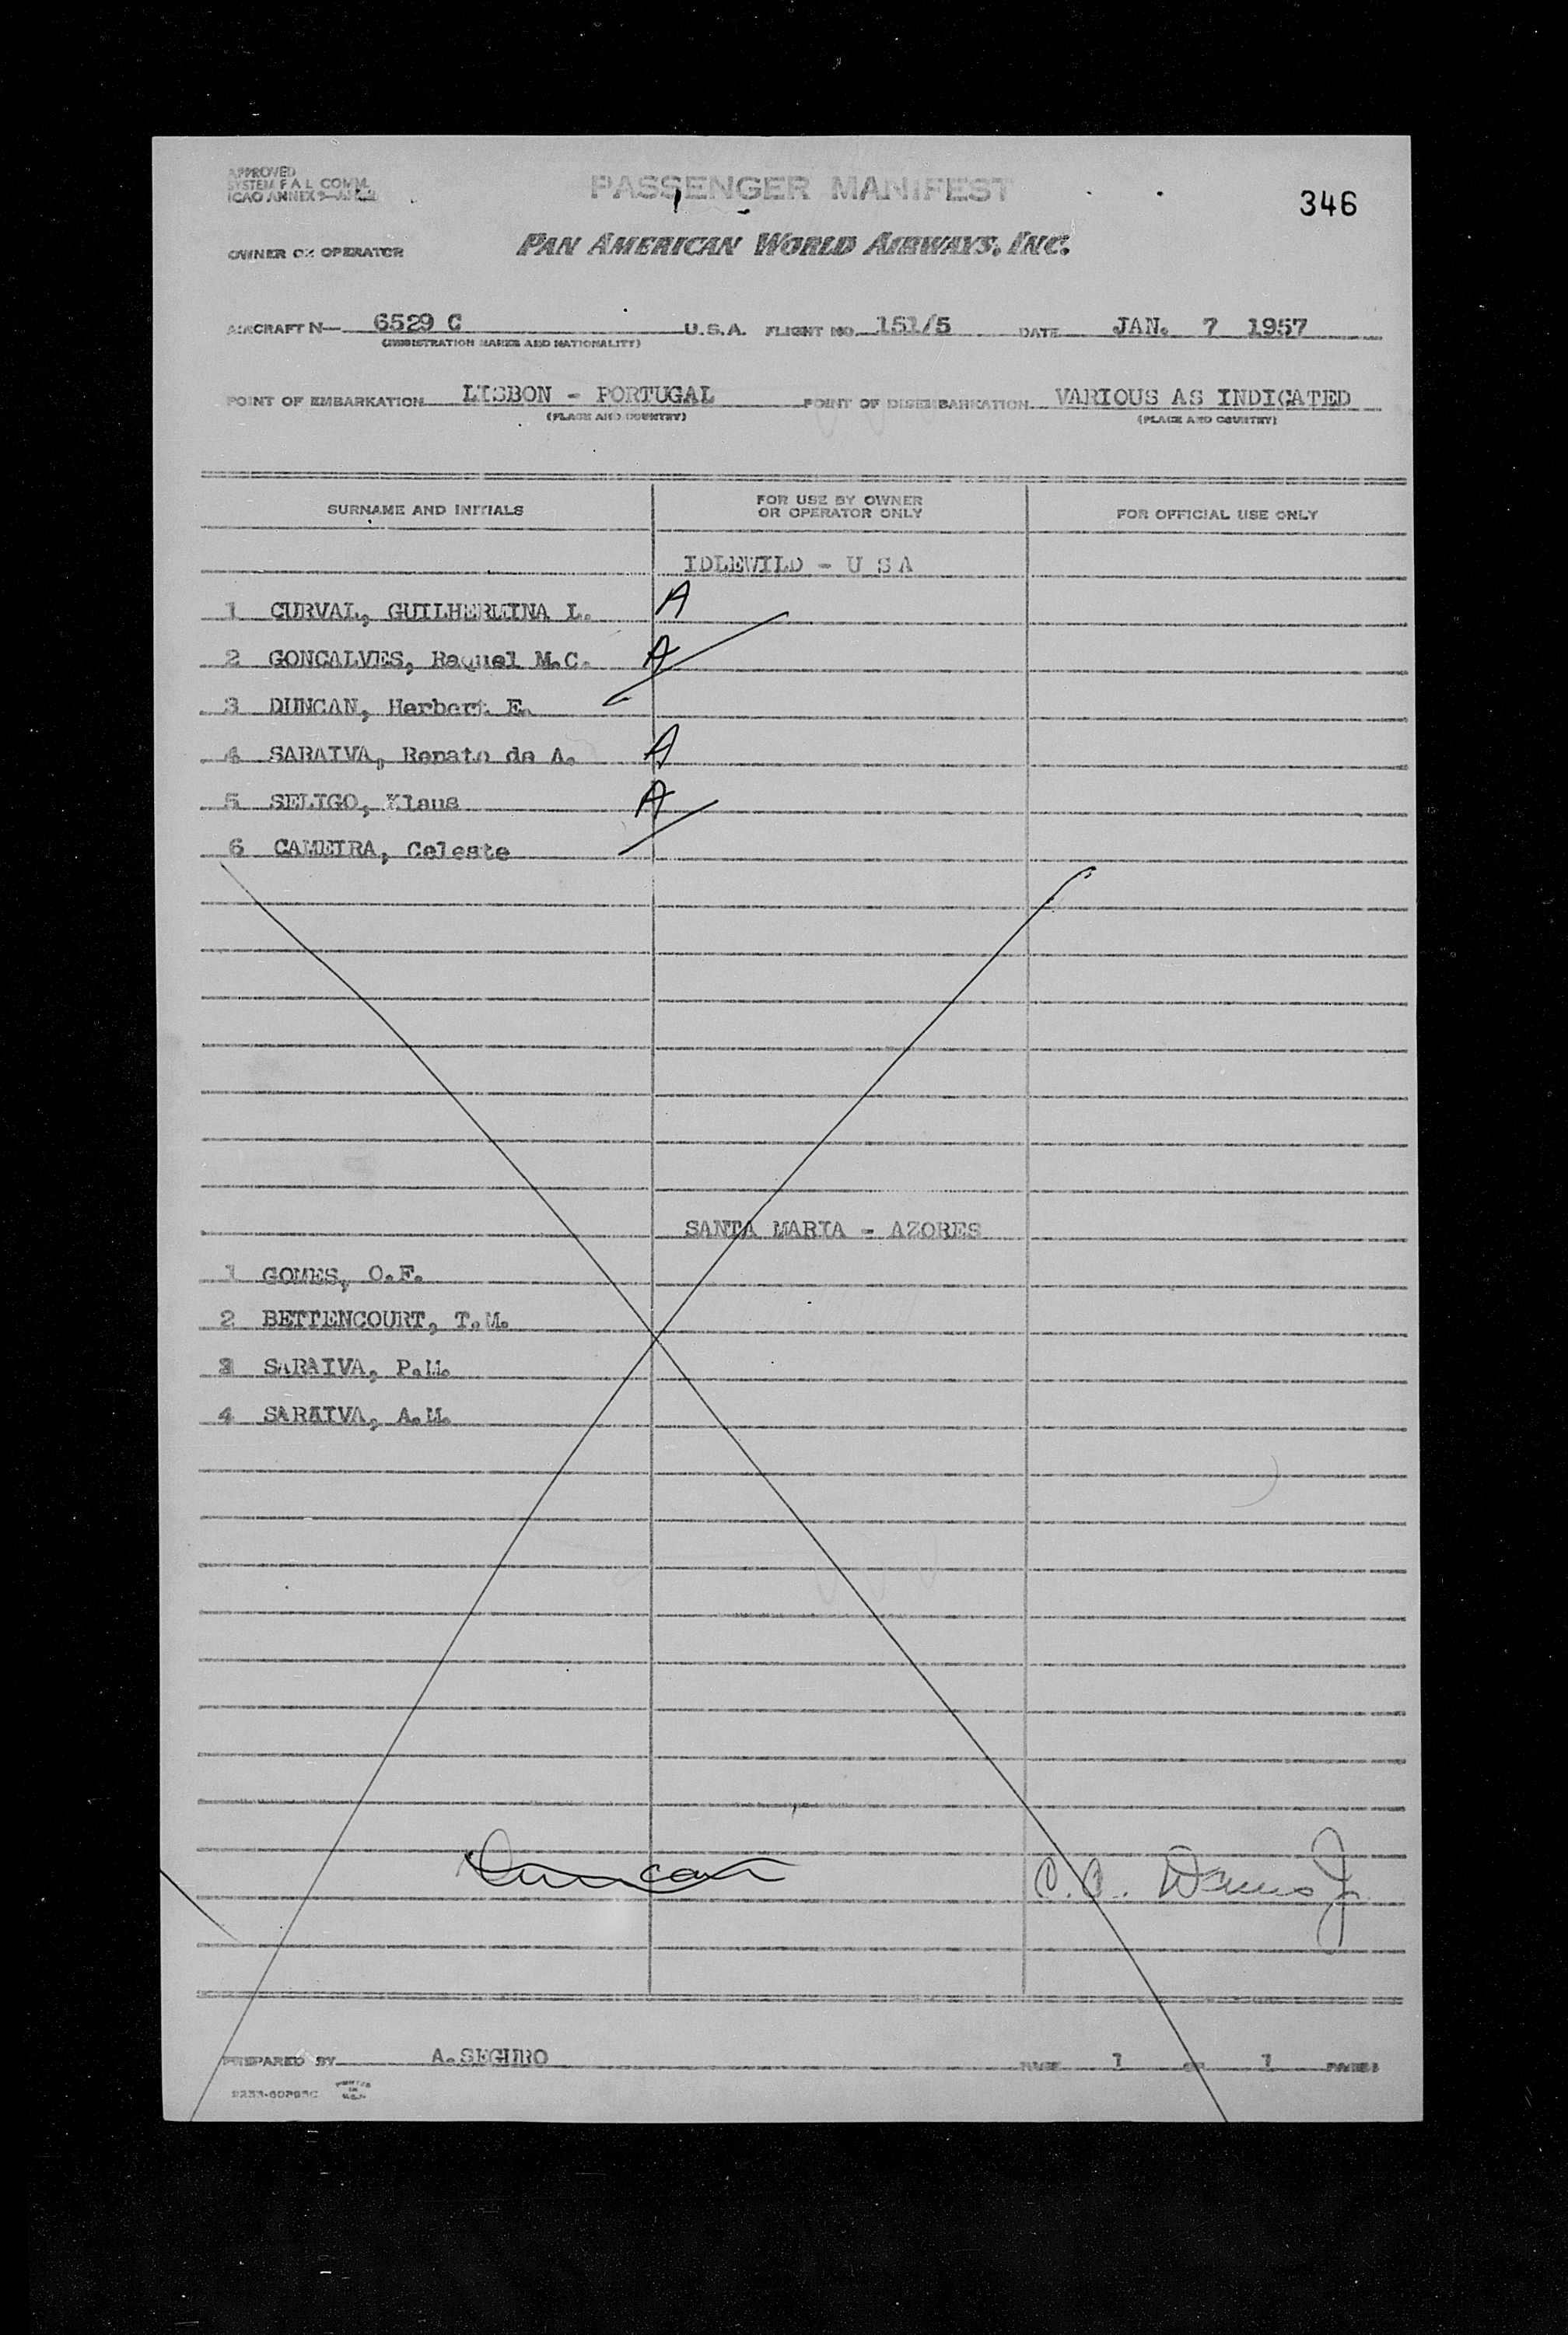 APPROVED
SYSTEM F A L COMM.
ICAO ANNEX 9
PASSENGER MANIFEST
346
OWNER OR OPERATOR PAN AMERICAN WORLD AIRWAYS, INC.
AIRCRAFT N— 6529 C U.S.A. FLIGHT NO. 151/5 DATE JAN. 7 1957
(REGISTRATION MARKS AND NATIONALITY)
POINT OF EMBARKATION LISBON - PORTUGAL POINT OF DISEMBARKATION VARIOUS AS INDICATED
(PLACE AND COUNTRY) (PLACE AND COUNTRY)
SURNAME AND INITIALS FOR USE BY OWNER OR OPERATOR ONLY FOR OFFICIAL USE ONLY
IDLEWILD - U S A
1 CURVAL, GUILHERMINA L. A
2 GONCALVES, Raquel M.C. A
3 DUNCAN, Herbert E.
4 SARAIVA, Renato de A. A
5 SELIGO, Klaus A
6 CAMEIRA, Celeste
SANTA MARIA - AZORES
1 GOMES, O.F.
2 BETTENCOURT, T.M.
3 SARAIVA, P.M.
4 SARAIVA, A.M.
Duncan
C. C. Jr
PREPARED BY A.SEGURO PAGE 1 OF 1 PAGES
PRINTED IN U.S.A.